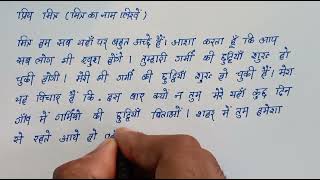 प्रिय मित्र (मित्र का नाम लिखें)
मित्र हम सब यहाँ पर बहुत अच्छे हैं। आशा करता हूँ कि आप
सब लोग भी खुश होंगे। तुम्हारी गर्मी की छुट्टियाँ शुरू हो
चुकी होंगी। मेरी भी गर्मी की छुट्टियाँ शुरू हो चुकी हैं। मेरा
यह विचार है कि इस बार क्यों न तुम मेरे यहाँ कुछ दिन
गाँव में गर्मियों की छुट्टियाँ बिताओ। शहर में तुम हमेशा
से रहते आये हो